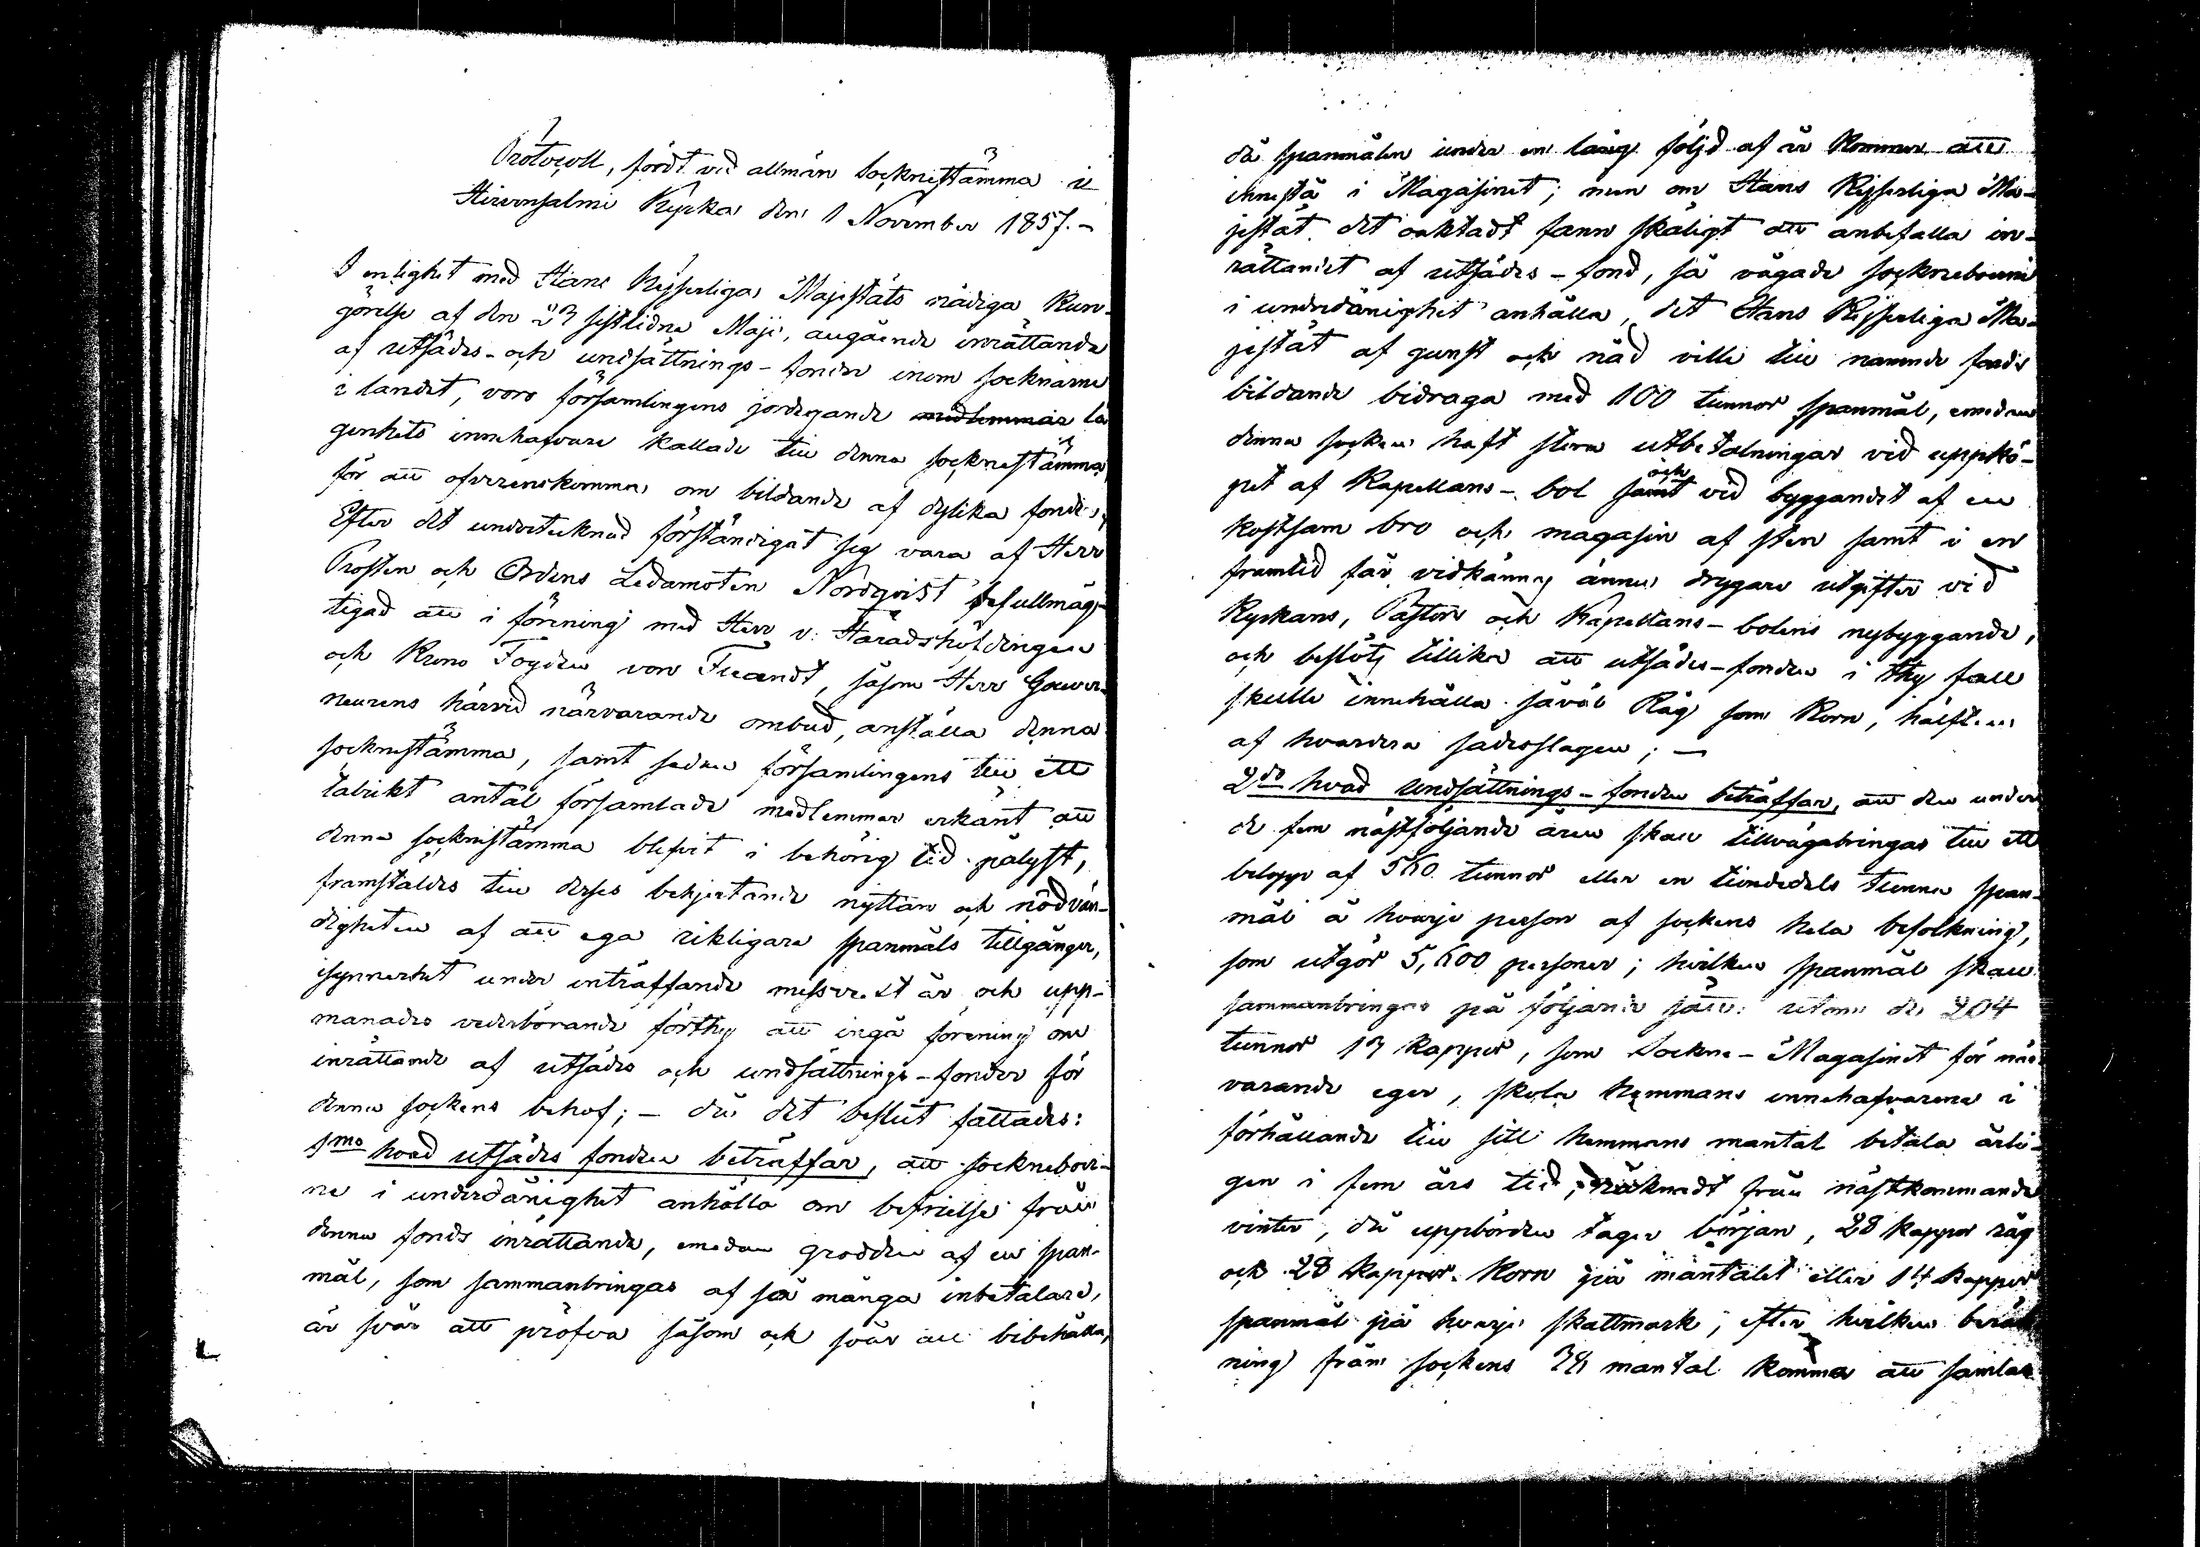 Protocoll, fördt vid allmän Socknestämma i
Hirvensalmi Kyrka den 1 November 1857.-
I enlighet med Hans Kejserliga Majestäts nådiga Kun-
görelse af den 23 sistlidne Maji, angående inrättande
af utsädes- och undsättnings-fonder inom socknarne
i landet, voro församlingens jordegande medlemmar lä
genhets innehafvare kallade till denna socknestämma,
för att öfverenskomma om bildande af dylika fonder.
Efter det undertecknad förständigat sig vara af Herr
Prosten och Ordens Ledamoten Nordqvist befullmäg-
tigad att i förening med Herr v. Häradshöfdingen
och Krono Fogden von Fieandt, såsom Herr Gouver-
neurens härvid närvarande ombud, anställa denna
socknestämma, samt sedan församlingens till ett
talrikt antal församlade medlemmar erkänt att
denna socknestämma blifvit i behörig tid pålyst,
framstäldes till deras behjertande nyttan och nödvän-
digheten af att ega rikligare spanmåls tillgånger,
isynnerhet under inträffande missvext år och upp-
manades vederbörande förthy att ingå förening om
inrättande af utsädes och undsättnings-fonder för
denna sockens behof; - då det beslut fattades:
1mo hvad utsädes fonden beträffar, att sockneboer-
ne i underdånighet anhålla om befrielse från
denna fonds inrättande, emedan grodden af en span-
mål, som sammanbringas af så många inbetalare,
är svår att pröfva såsom ock svår att bibehålla,
då spanmålen under en lång följd af år kommer att
innestå i Magasinet; men om Hans Kejserliga Ma-
jestät det oaktadt fann skäligt att anbefalla in-
rättandet af utsädes-fond, så vågade sockneboerne
i underdånighet anhålla, det Hans Kejserliga Ma-
jestät af gunst och nåd ville till nämnde fonds
bildande bidraga med 100 tunnor spanmål, emedan
denna socken haft stora utbetalningar vid uppkö-
pet af Kapellans-bol samt och vid byggandet af en
kostsam bro och magasin af sten samt i en
framtid får vidkännas ännu drygare utgifter vid
Kyrkans, Pastors och Kapellans-bolens nybyggande,
och beslöts tillika att utsädes-fonden i thy fall
skulle innehålla såväl Råg som Korn, hälften
af hvardera sädesslagen; -
2do hvad undsättnings-fonden beträffar, att den under
de fem nästföljande åren skall tillvägabringas till ett
belopp af 560 tunnor eller en tiondedels tunna span-
mål å hvarje person af sockens hela befolkning,
som utgör 5,600 personer; hvilken spanmål skall
sammanbringas på följande sätt: utom de 204
tunnor 13 kappor, som Sockne-Magasinet för när
varande eger, skola hemmans innehafvarena i
förhållande till sitt hemmans mantal betala årli-
gen i fem års tid, räknadt från nästkommande
vinter, då uppbörden tager början, 28 kappor råg
och 28 kappor Korn på mantalet eller 14 kappor
spanmål på hvarje skattmark; efter hvilken beräk
ning från sockens mantal komma att samlas